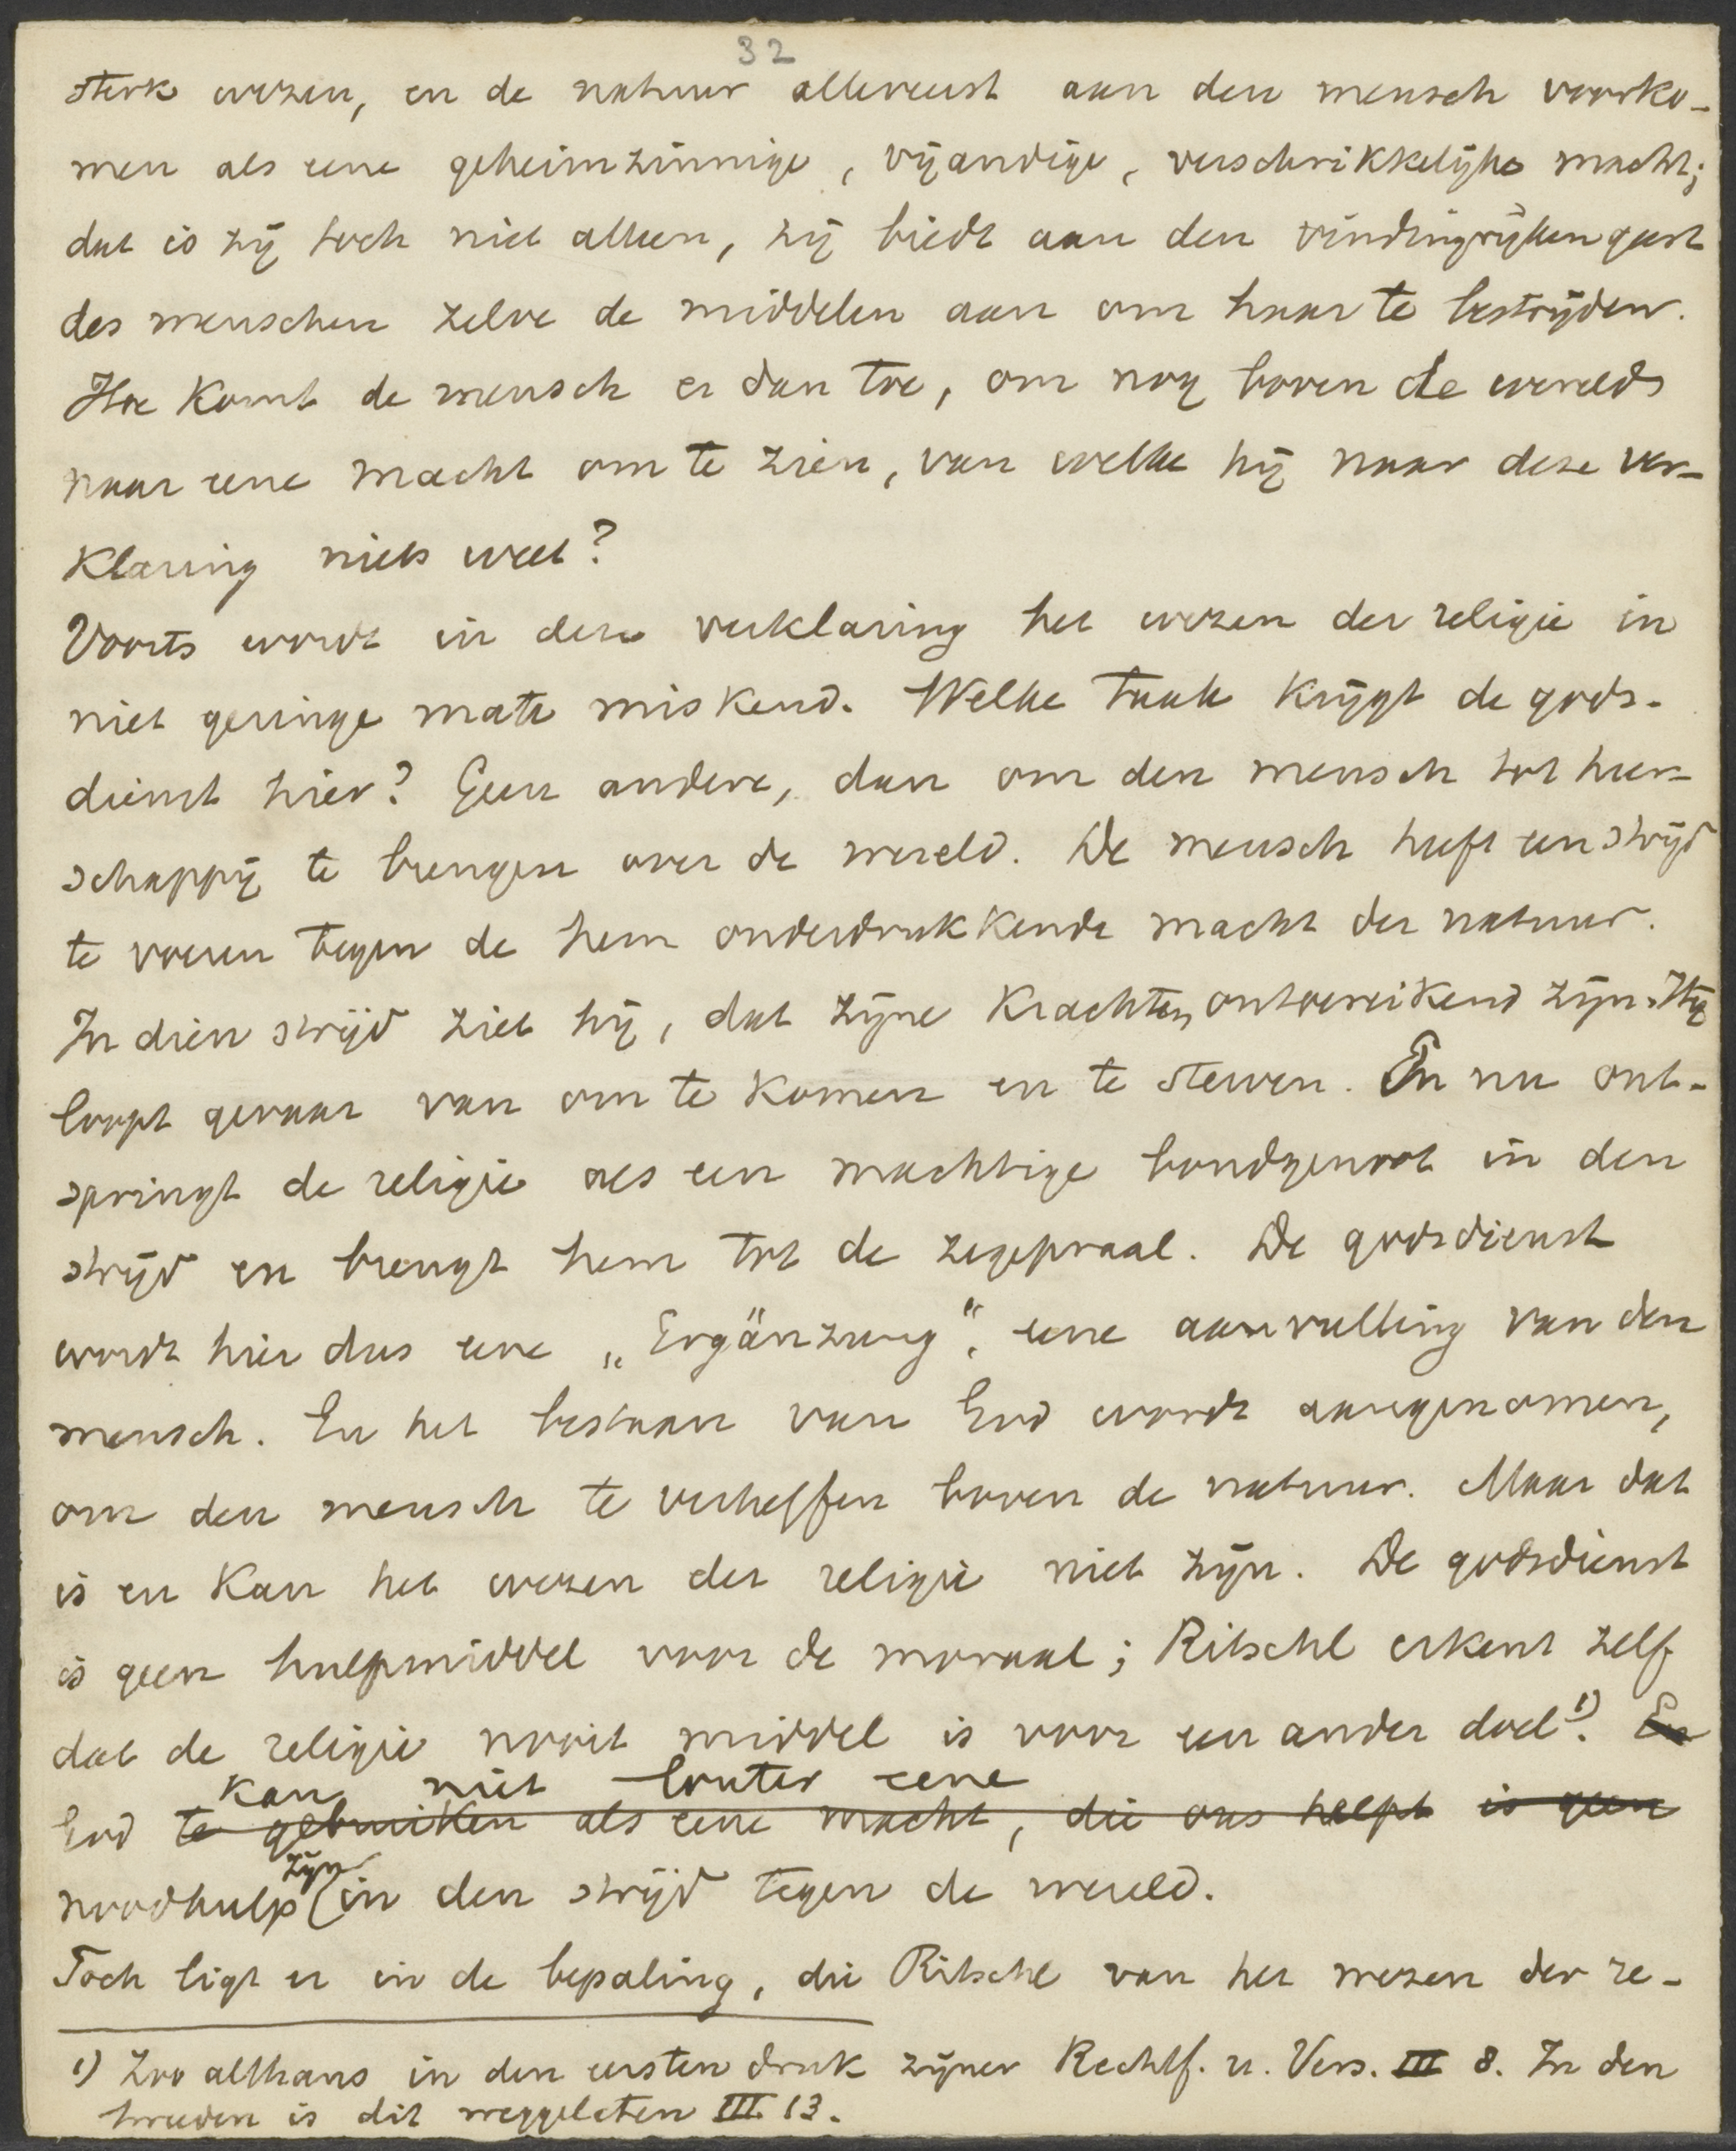 32
sterk wezen, en de natuur allereerst aan den mensch voorko-
men als eene geheimzinnige, vijandige, verschrikkelijke macht;
dat is zij toch niet alleen, zij biedt aan den vindingrijken geest
des menschen zelve de middelen aan om haar te bestrijden.
Hoe komt de mensch er dan toe, om nog boven de wereld
naar eene macht om te zien, van welke hij naar deze ver-
klaring niets weet?
Voorts wordt in deze verklaring het wezen der religie in
niet geringe mate miskend. Welke taak krijgt de gods-
dienst hier? Geen andere, dan om den mensch tot heer-
schappij te brengen over de wereld. De mensch heeft een strijd
te voeren tegen de hem onderdrukkende macht der natuur.
In dien strijd ziet hij, dat zijne krachten ontoereikend zijn. Hij
loopt gevaar van om te komen en te sterven. En nu ont-
springt de religie als een machtige bondgenoot in den
strijd en brengt hem tot de zegepraal. De godsdienst
wordt hier dus eene „Ergänzung“, eene aanvulling van den
mensch. En het bestaan van God wordt aangenomen,
om den mensch te verheffen boven de natuur. Maar dat
is en kan het wezen der religie niet zijn. De godsdienst
is geen hulpmiddel voor de moraal; Ritschl erkent zelf
dat de religie nooit middel is voor een ander doel 1). En
kan niet louter eene
God te gebruiken als eene macht, die ons helpt is geen
zijn
noodhulp in den strijd tegen de wereld.
Toch ligt er in de bepaling, die Ritschl van het wezen der re-
1) Zoo althans in den eersten druk zijner Rechtf. u. Vers. III 8. In den
tweeden is dit weggelaten III 13.